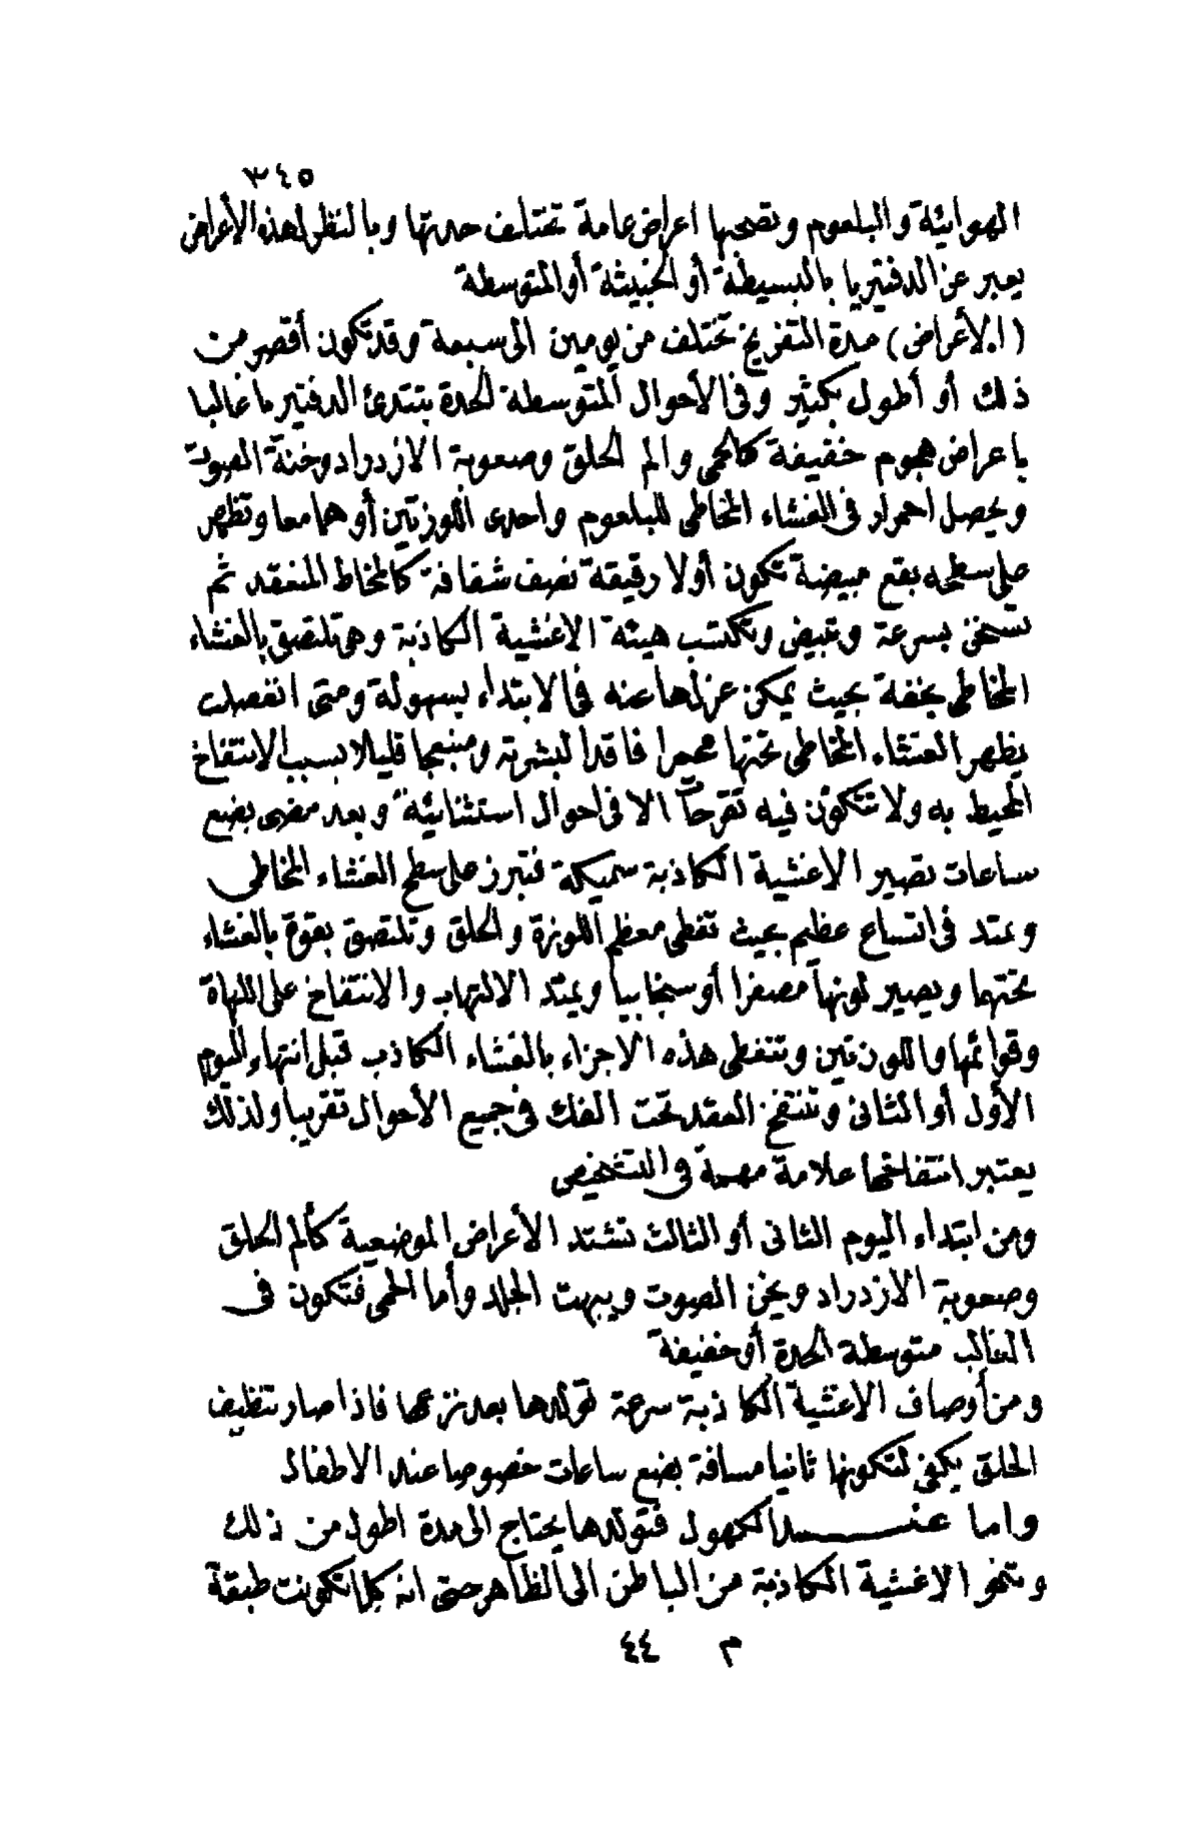 ٣٤٥
الهوائية والبلعوم وتصحبها اعراض عامة تختلف حدتها وبالنظر لهذه الأعراض
يعبر عن الدفتيريا بالبسيطة أو الخبيثة أو المتوسطة
(الأعراض) مدة التفريخ تختلف من يومين الى سبعة وقد تكون أقصر من
ذلك أو أطول بكثير وفى الأحوال المتوسطة الحدة يبتدئ الدفتيريا غالبا
باعراض هجوم خفيفة كالحمى والم الحلق وصعوبة الازدراد وخنة الصوت
ويحصل احمرار فى الغشاء المخاطى للبلعوم واحدى اللوزتين أو هما معا وتظهر
على سطحه بقع مبيضة تكون أولا رقيقة نصف شفافة كالمخاط المنعقد ثم
تسخن بسرعة وتبيض وتكتسب هيئة الاغشية الكاذبة وهى تلتصق بالغشاء
المخاطى بخفة بحيث يمكن عزلها عنه فى الابتداء بسهولة ومتى انفصلت
يظهر الغشاء المخاطى تحتها محمرا فاقدا لبشرته ومنبعجا قليلا بسبب الانتفاخ
المحيط به ولا تتكون فيه تقرحاً الا فى احوال استثنائية وبعد مضى بضع
ساعات تصير الاغشية الكاذبة سميكة فتبرز على سطح الغشاء المخاطى
وتمتد فى اتساع عظيم بحيث تغطى معظم اللوزة والحلق وتلتصق بقوة بالغشاء
تحتها ويصير لونها مصفرا أو سنجابيا ويمتد الالتهاب والانتفاخ على اللهاة
وقوائمها واللوزتين وتتغطى هذه الاجزاء بالغشاء الكاذب قبل انتهاء اليوم
الأول أو الثانى وتنتفخ العقد تحت الفك فى جميع الأحوال تقريبا ولذلك
يعتبر انتفاخها علامة مهمة فى التشخيص
ومن ابتداء اليوم الثانى أو الثالث تشتد الأعراض الموضعية كألم الحلق
وصعوبة الازدراد ويخن الصوت ويبهت الجلد وأما الحمى فتكون فى
الغالب متوسطة الحدة أو خفيفة
ومن أوصاف الاغشية الكاذبة سرعة تولدها بعد نزعها فاذا صار تنظيف
الحلق يكفى لتكونها ثانيا مسافة بضع ساعات خصوصا عند الاطفال
واما عند الكهول فتولدها يحتاج الى مدة اطول من ذلك
وتنمو الاغشية الكاذبة من الباطن الى الظاهر حتى انه كلما تكونت طبقة
م ٤٤